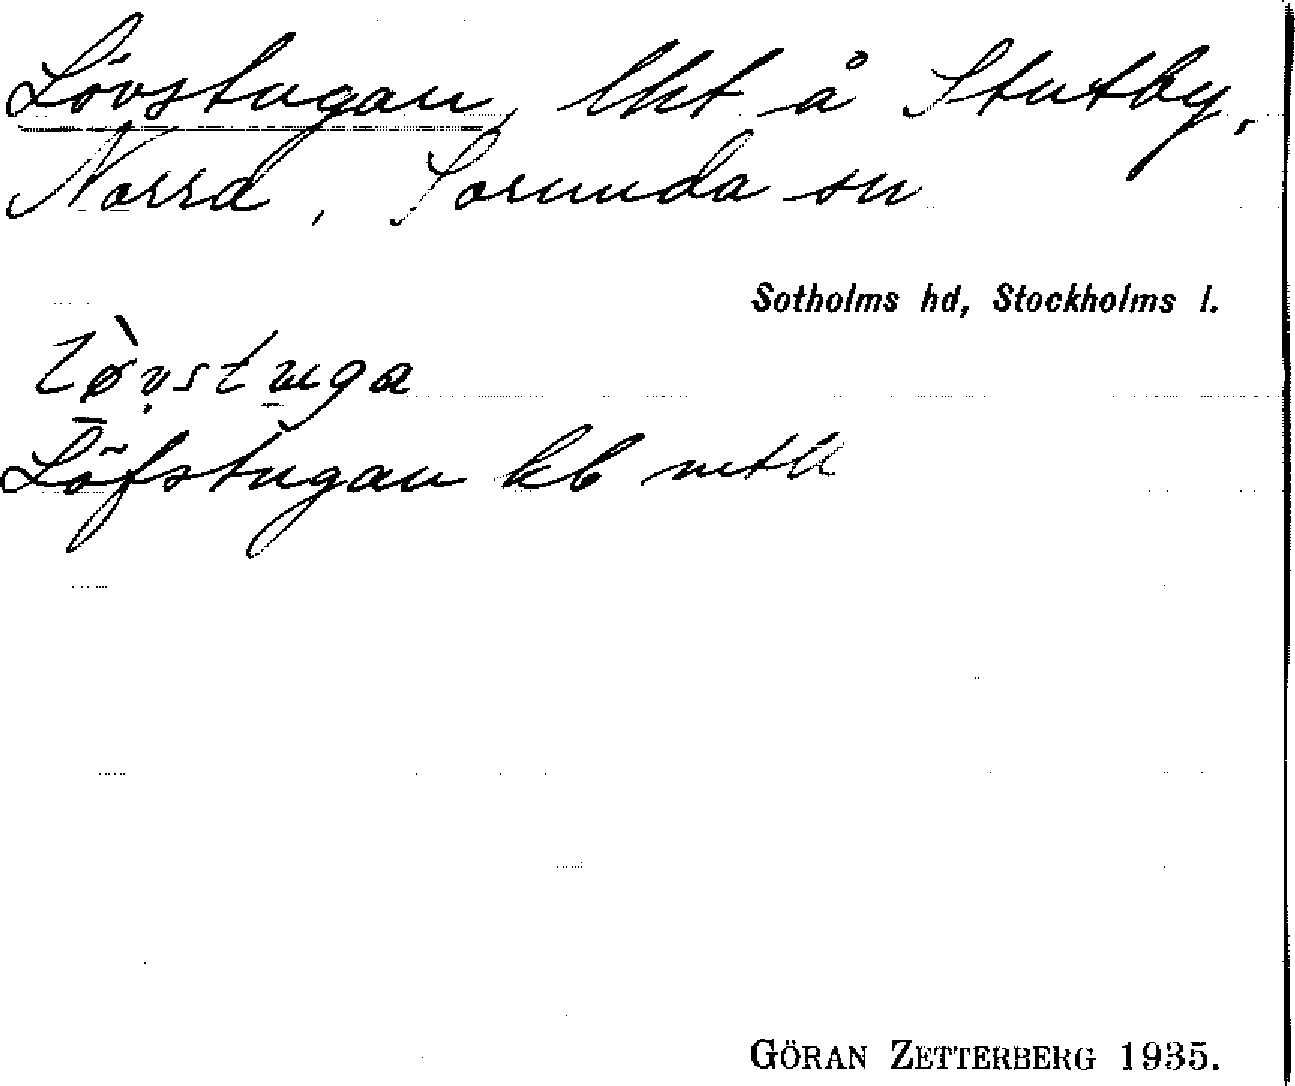 Lövstugan, lht å Stutby,
Norra, Sorunda sn
Sotholms hd, Stockholms l.
lø̀vstuga
Löfstugan kb
GÖRAN ZETTERBERG 1935.